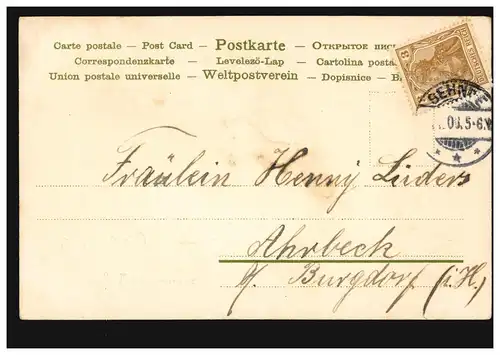 Carte postale — Post Card — Postkarte — Открытое пис
Correspondenzkarte — Levelező-Lap — Cartolina posta
Union postale universelle — Weltpostverein — Dopisnice — B
3
DEUTSCHES REICH
SEHNDE
5-6.N
Fräulein Henny Lüders
Ahrbeck
b/ Burgdorf (i. H.)